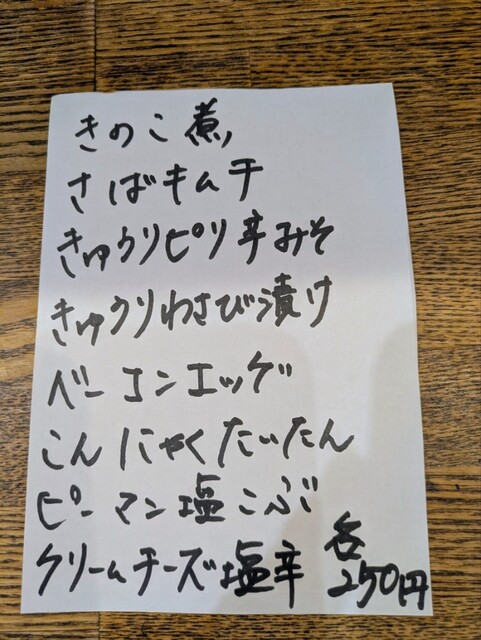 きのこ煮
さばキムチ
きゅうりピリ辛みそ
きゅうりわさび漬け
ベーコンエッグ
こんにゃくたいたん
ピーマン塩こぶ
クリームチーズ塩辛
各
250円